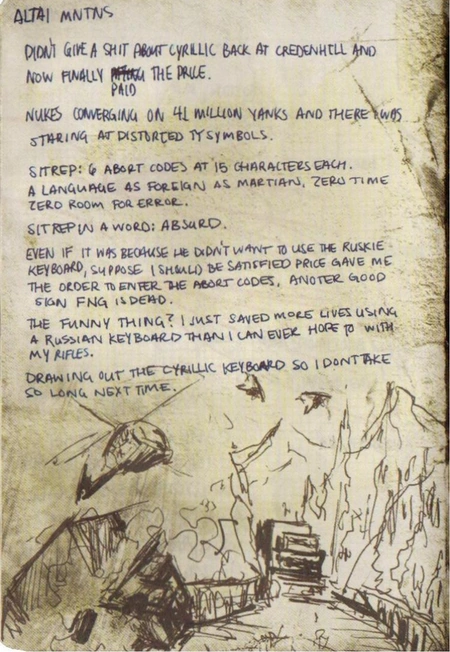 ALTAI MNTNS
DIDN'T GIVE A SHIT ABOUT CYRILLIC BACK AT CREDENHILL AND
NOW FINALLY PAID THE PRICE.
NUKES CONVERGING ON 41 MILLION YANKS AND THERE I WAS
STARING AT DISTORTED TY SYMBOLS.
SITREP: 6 ABORT CODES AT 15 CHARACTERS EACH.
A LANGUAGE AS FOREIGN AS MARTIAN, ZERO TIME
ZERO ROOM FOR ERROR.
SITREP IN A WORD: ABSURD.
EVEN IF IT WAS BECAUSE HE DIDN'T WANT TO USE THE RUSKIE
KEYBOARD, SUPPOSE I SHOULD BE SATISFIED PRICE GAVE ME
THE ORDER TO ENTER THE ABORT CODES, ANOTER GOOD
SIGN FNG IS DEAD.
THE FUNNY THING? I JUST SAVED MORE LIVES USING
A RUSSIAN KEYBOARD THAN I CAN EVER HOPE TO WITH
MY RIFLES.
DRAWING OUT THE CYRILLIC KEYBOARD SO I DONT TAKE
SO LONG NEXT TIME.